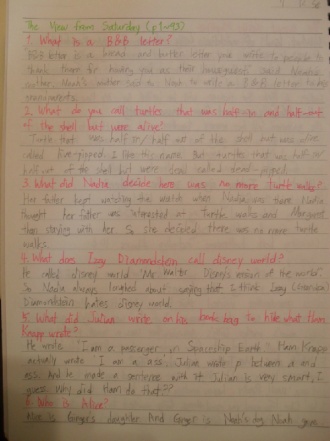 The View from Saturday (p1~93)
1. What is a B&B letter?
B&B letter is a bread and butter letter you write to people to
thank them for having you as their houseguest, said Noah's
mother. Noah's mother said to Noah to write a B&B letter to his
grandparents.
2. What do you call turtles that was half-in and half-out
of the shell but were alive?
Turtle that was half in / half out of the shell but was alive
called live-pipped. I like this name. But turtles that was half in/
half out of the shell but were dead called dead-pipped.
3. What did Nadia decide there was no more turtle walks?
Her father kept watching the watch when Nadia was there. Nadia
thought her father was interested at Turtle walks and Margaret
than staying with her. So she decided there was no more turtle
walks.
4. What does Izzy Diamondstein call disney world?
He called disney world "Mr Walter Disney's version of the world".
So Nadia always laughed about saying that. I think Izzy
Diamondstein hates disney world.
5. What did Julian write on his book bag to hide what Ham
Knapp wrote?
He wrote "I am a passenger on Spaceship Earth". Ham Knapp
actually wrote "I am a ass". Julian wrote p between a and
ass. And he made a sentence with it. Julian is very smart, I
guess. Why did Ham do that??
6. Who is Alice?
Alice is Ginger's daughter. And Ginger is Noah's dog. Noah gave